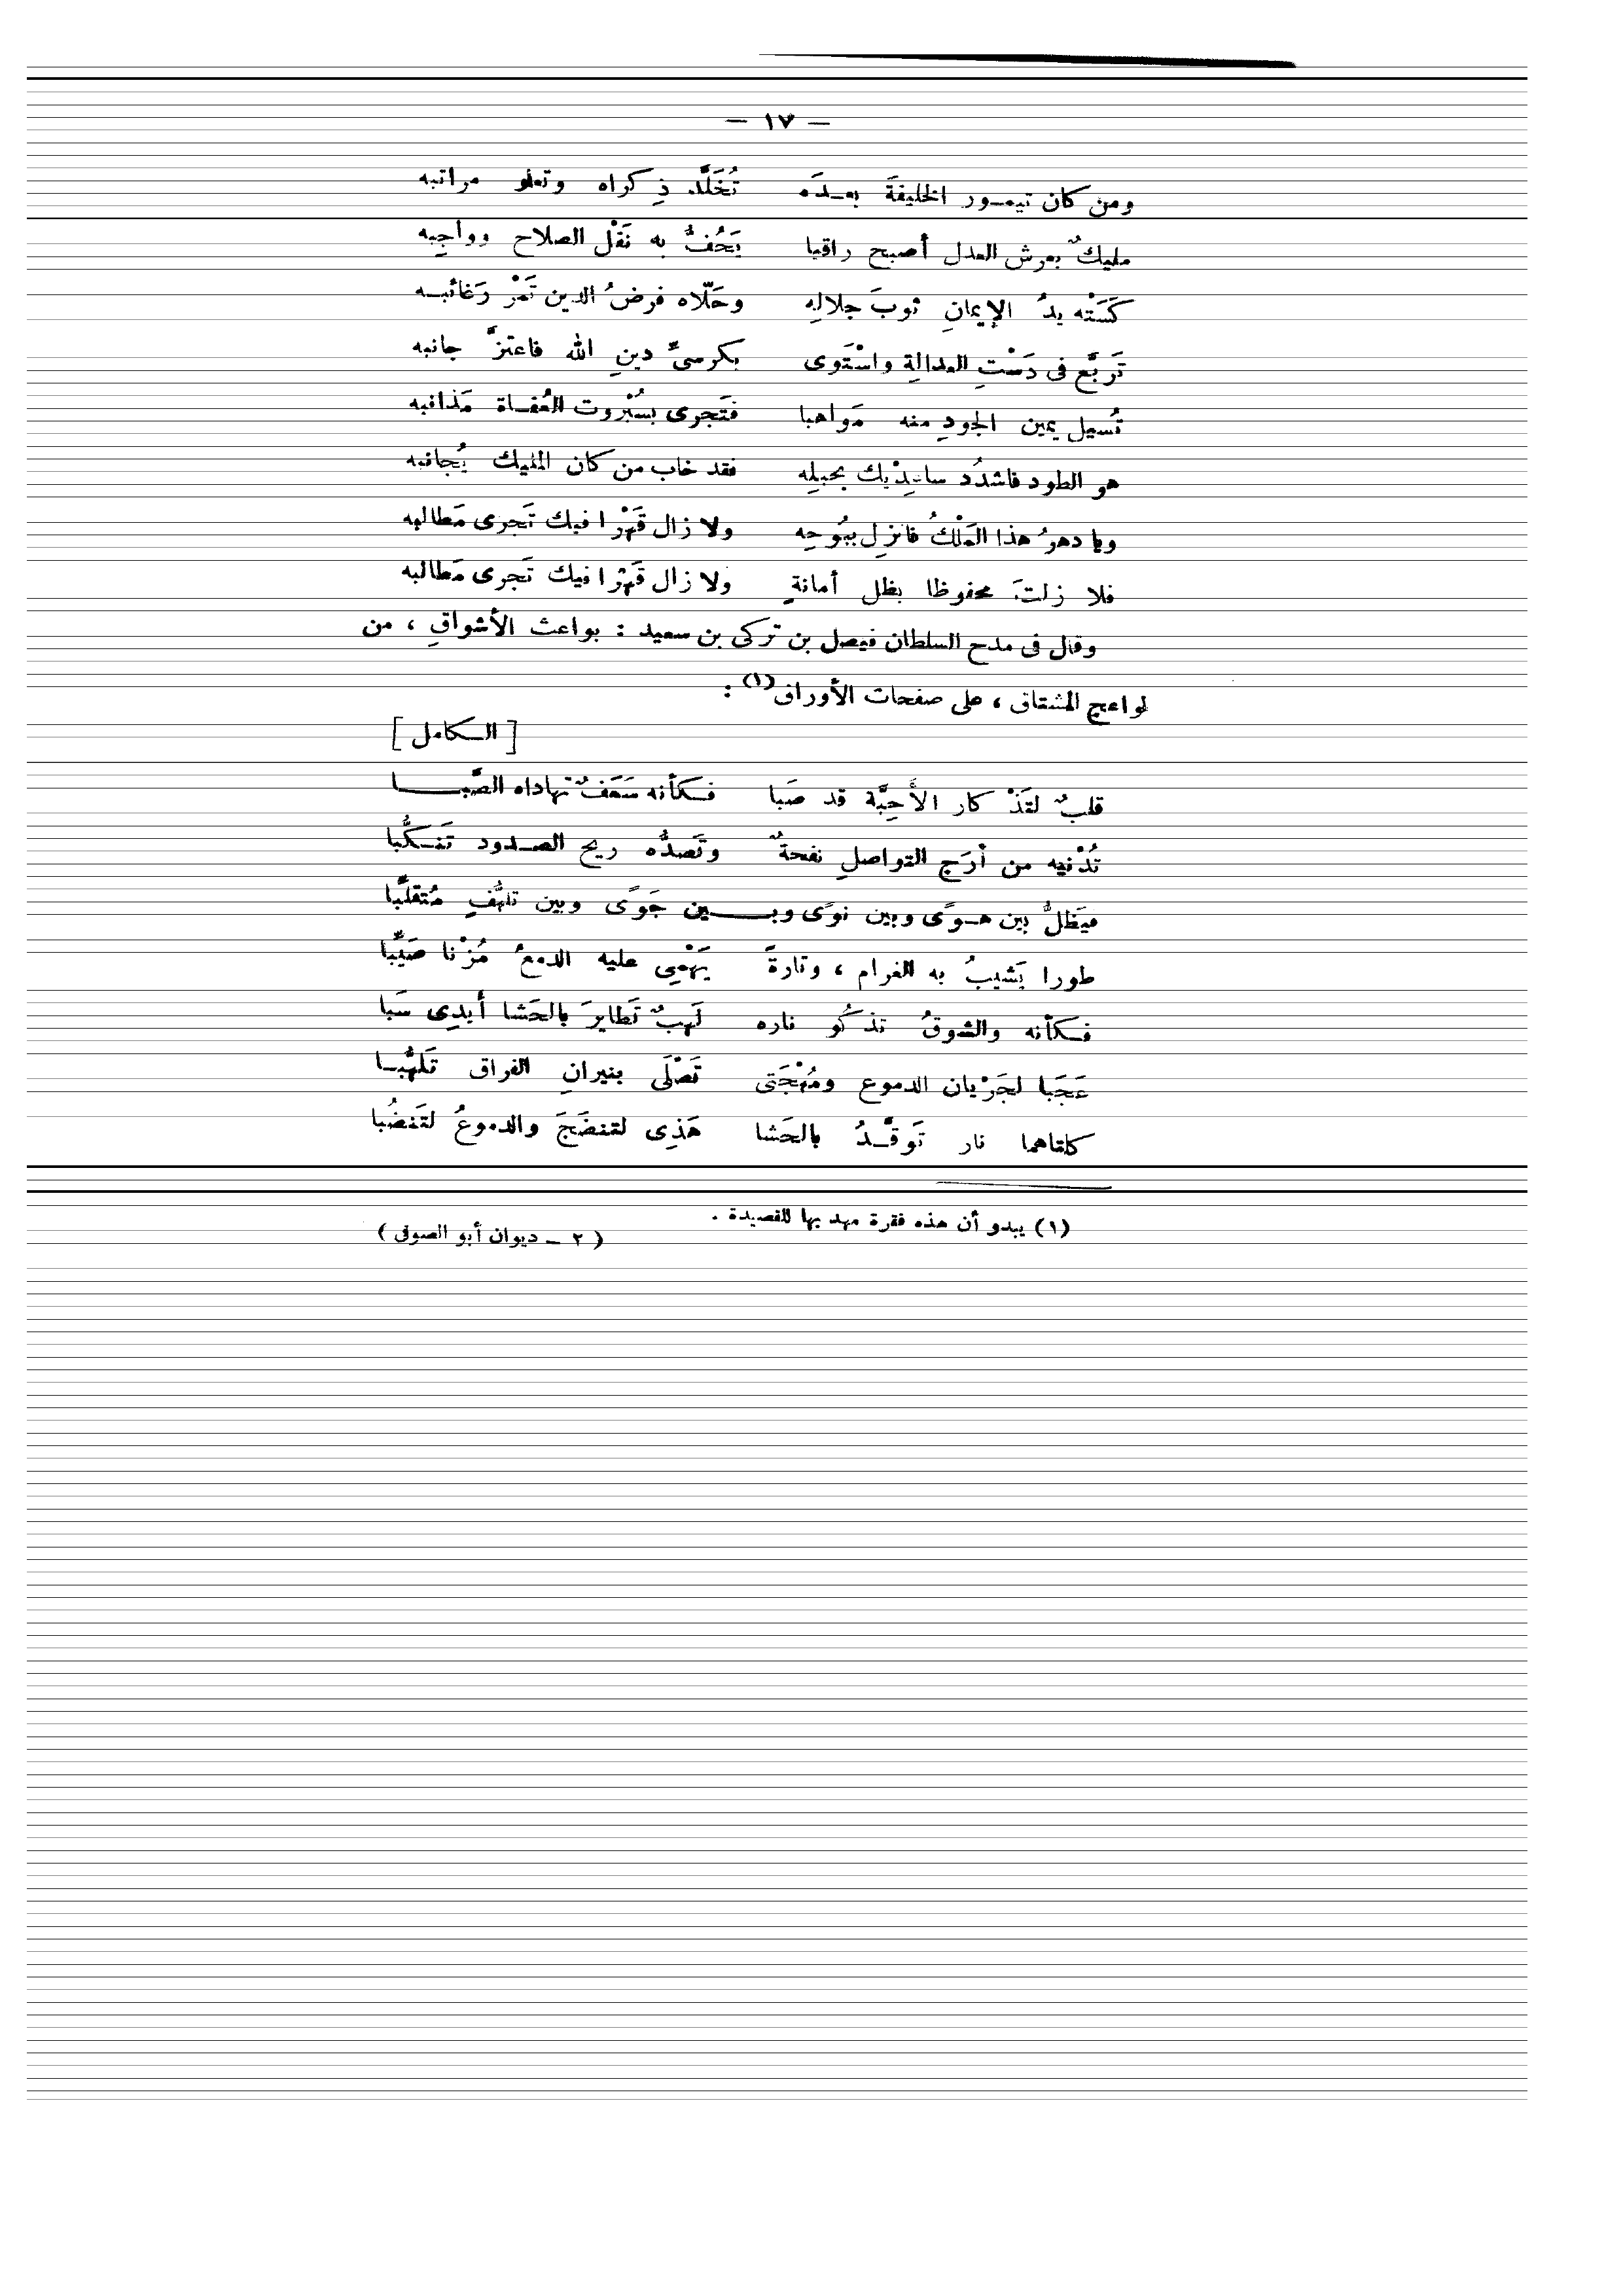 — ١٧ —
ومن كان تيمور الخليفةَ بعدَه تُخَلَّد ذِكراه وتعلو مراتبه
مليكٌ بعرش العدل أصبح راقيا يَحُفُّ به نَفْل الصلاح وواجِبه
كَسَتْه يدُ الإيمانِ ثوبَ جلالِهِ وحَلّاه فرضُ الدين تَمْر رَغائبه
تَربَّع فى دَسْتِ العدالةِ واسْتَوى بكرسىِّ دينِ الله فاعتزَّ جانبه
تُسيل يمين الجودِ منه مَواهبا فتَجرى بسُبْروت العُفاة مَذانبه
هو الطود فاشدُد ساعِدْيك بحبلِه فقد خاب من كان المليك يُجانبه
ويا دهرُ هذا المَلْكُ فانزِل ببُوحِه ولا زال قَهْرا فيك تَجرى مَطالبه
فلا زلتَ محفوظا بظل أمانةٍ ولا زال قَهْرا فيك تَجرى مَطالبه
وقال فى مدح السلطان فيصل بن تركى بن سعيد : بواعث الأشواقِ ، من
لواعج المشتاق ، على صفحات الأوراق(١) :
[ الكامل ]
قلبٌ لتَذْكار الأَحِبَّة قد صَبا فكأنه سَعَفٌ تهاداه الصَّبا
تُدْنيه من أَرَج التواصلِ نفحةٌ وتَصدُّه ريح الصدود تَنَكُّبا
فيَظلُّ بين هوًى وبين نوًى وبين جَوًى وبين تلهُّفٍ مُتقلِّبا
طورا يَشيبُ به الغرام ، وتارةً يَهْمِى عليه الدمعُ مُزْنا صَيِّبا
فكأنه والشوقُ تذكُو ناره لَهبٌ تَطايرَ بالحَشا أيدِى سَبا
عَجَبا لجَرْيان الدموع ومُهْجَتى تَصْلَى بنيرانِ الفراق تَلهُّبا
كلتاهما نار تَوقَّدُ بالحَشا هَذِى لتنضَجَ والدموعُ لتَنضُبا
(١) يبدو أن هذه فقرة مهد بها للقصيدة .
( ٢ — ديوان أبو الصوفى )